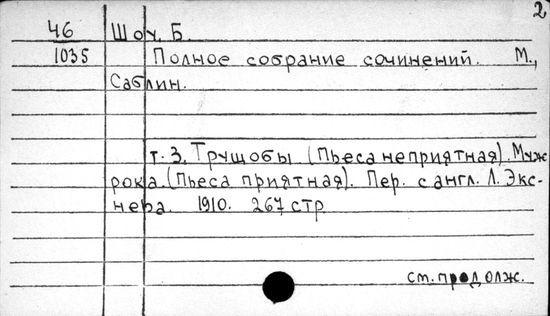 2
46 Шоу. Б.
1035 Полное собрание сочинений. М.,
Саблин.
т. 3. Трущобы (Пьеса неприятная). Муж
рока. (Пьеса приятная). Пер. с англ. Л. Экс-
нера. 1910. 267 стр
см. продолж.